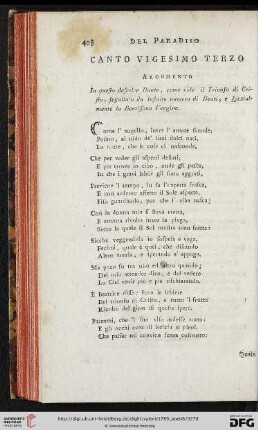 408 DEL PARADISO
CANTO VIGESIMO TERZO
ARGOMENTO
In questo descrive Dante, come vide il Trionfo di Cri-
sto, seguitato da infinito numero di Beati, e spezial-
mente la Beatissima Vergine.
Come l' augello, inter l' amate fronde,
Posato, al nido de' suoi dolci nati,
La notte, che le cose ci nasconde,
Che per veder gli aspetti desiati,
E per trovar lo cibo, onde gli pasca,
In che i gravi labor gli sono aggrati,
Previene 'l tempo, in su l' aperta frasca,
E con ardente affetto il Sole aspetta,
Fiso guardando, pur che l' alba nasca;
Così la donna mia si stava eretta,
E attenta rivolta inver la plaga,
Sotto la quale il Sol mostra men fretta:
Sicchè veggendola io sospesa e vaga,
Fecimi, quale è quei, che disiando
Altro vorria, e sperando s' appaga.
Ma poco fu tra uno ed altro quando;
Del mio attender dico, e del vedere
Lo Ciel venir più e più rischiarando.
E Beatrice disse: Ecco le schiere
Del trionfo di Cristo, e tutto 'l frutto
Ricolto del girar di queste spere.
Pareami, che 'l suo viso ardesse tutto:
E gli occhi avea di letizia sì pieni,
Che passar mi convien senza costrutto:
Quale
http://digi.ub.uni-heidelberg.de/diglit/
DFG